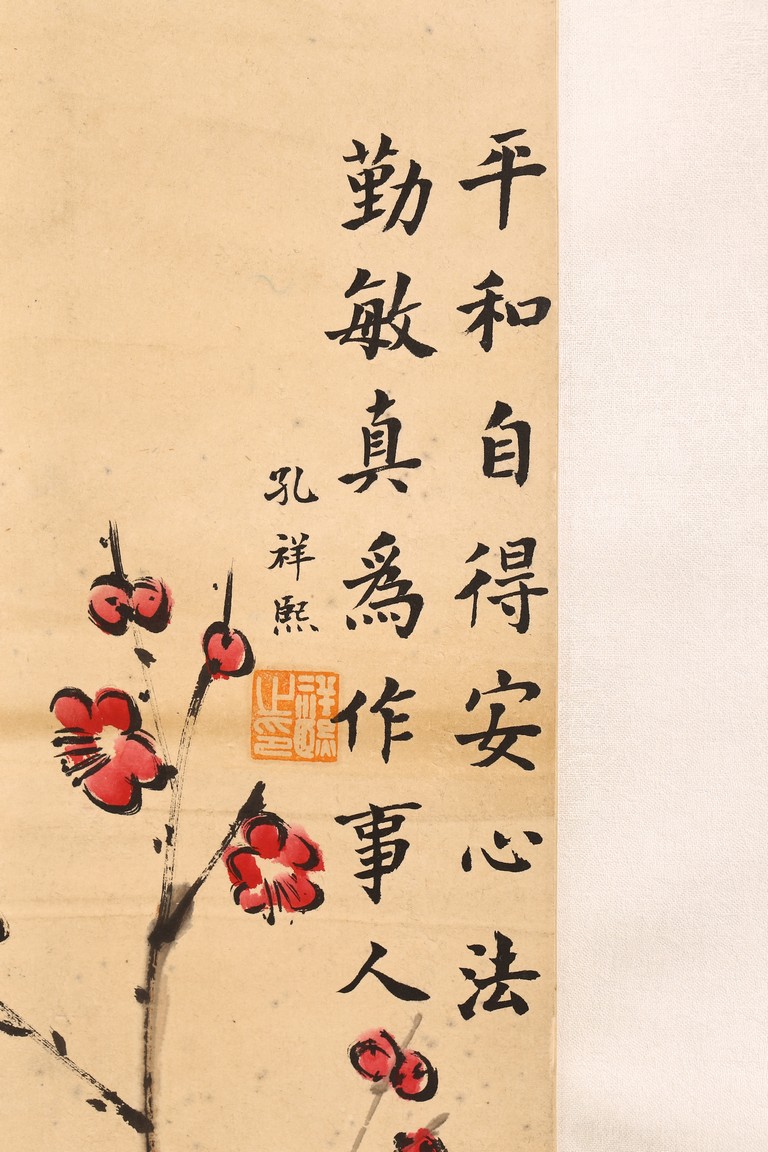 平和自得安心法
勤敏真為作事人
孔祥熙
祥熙之印